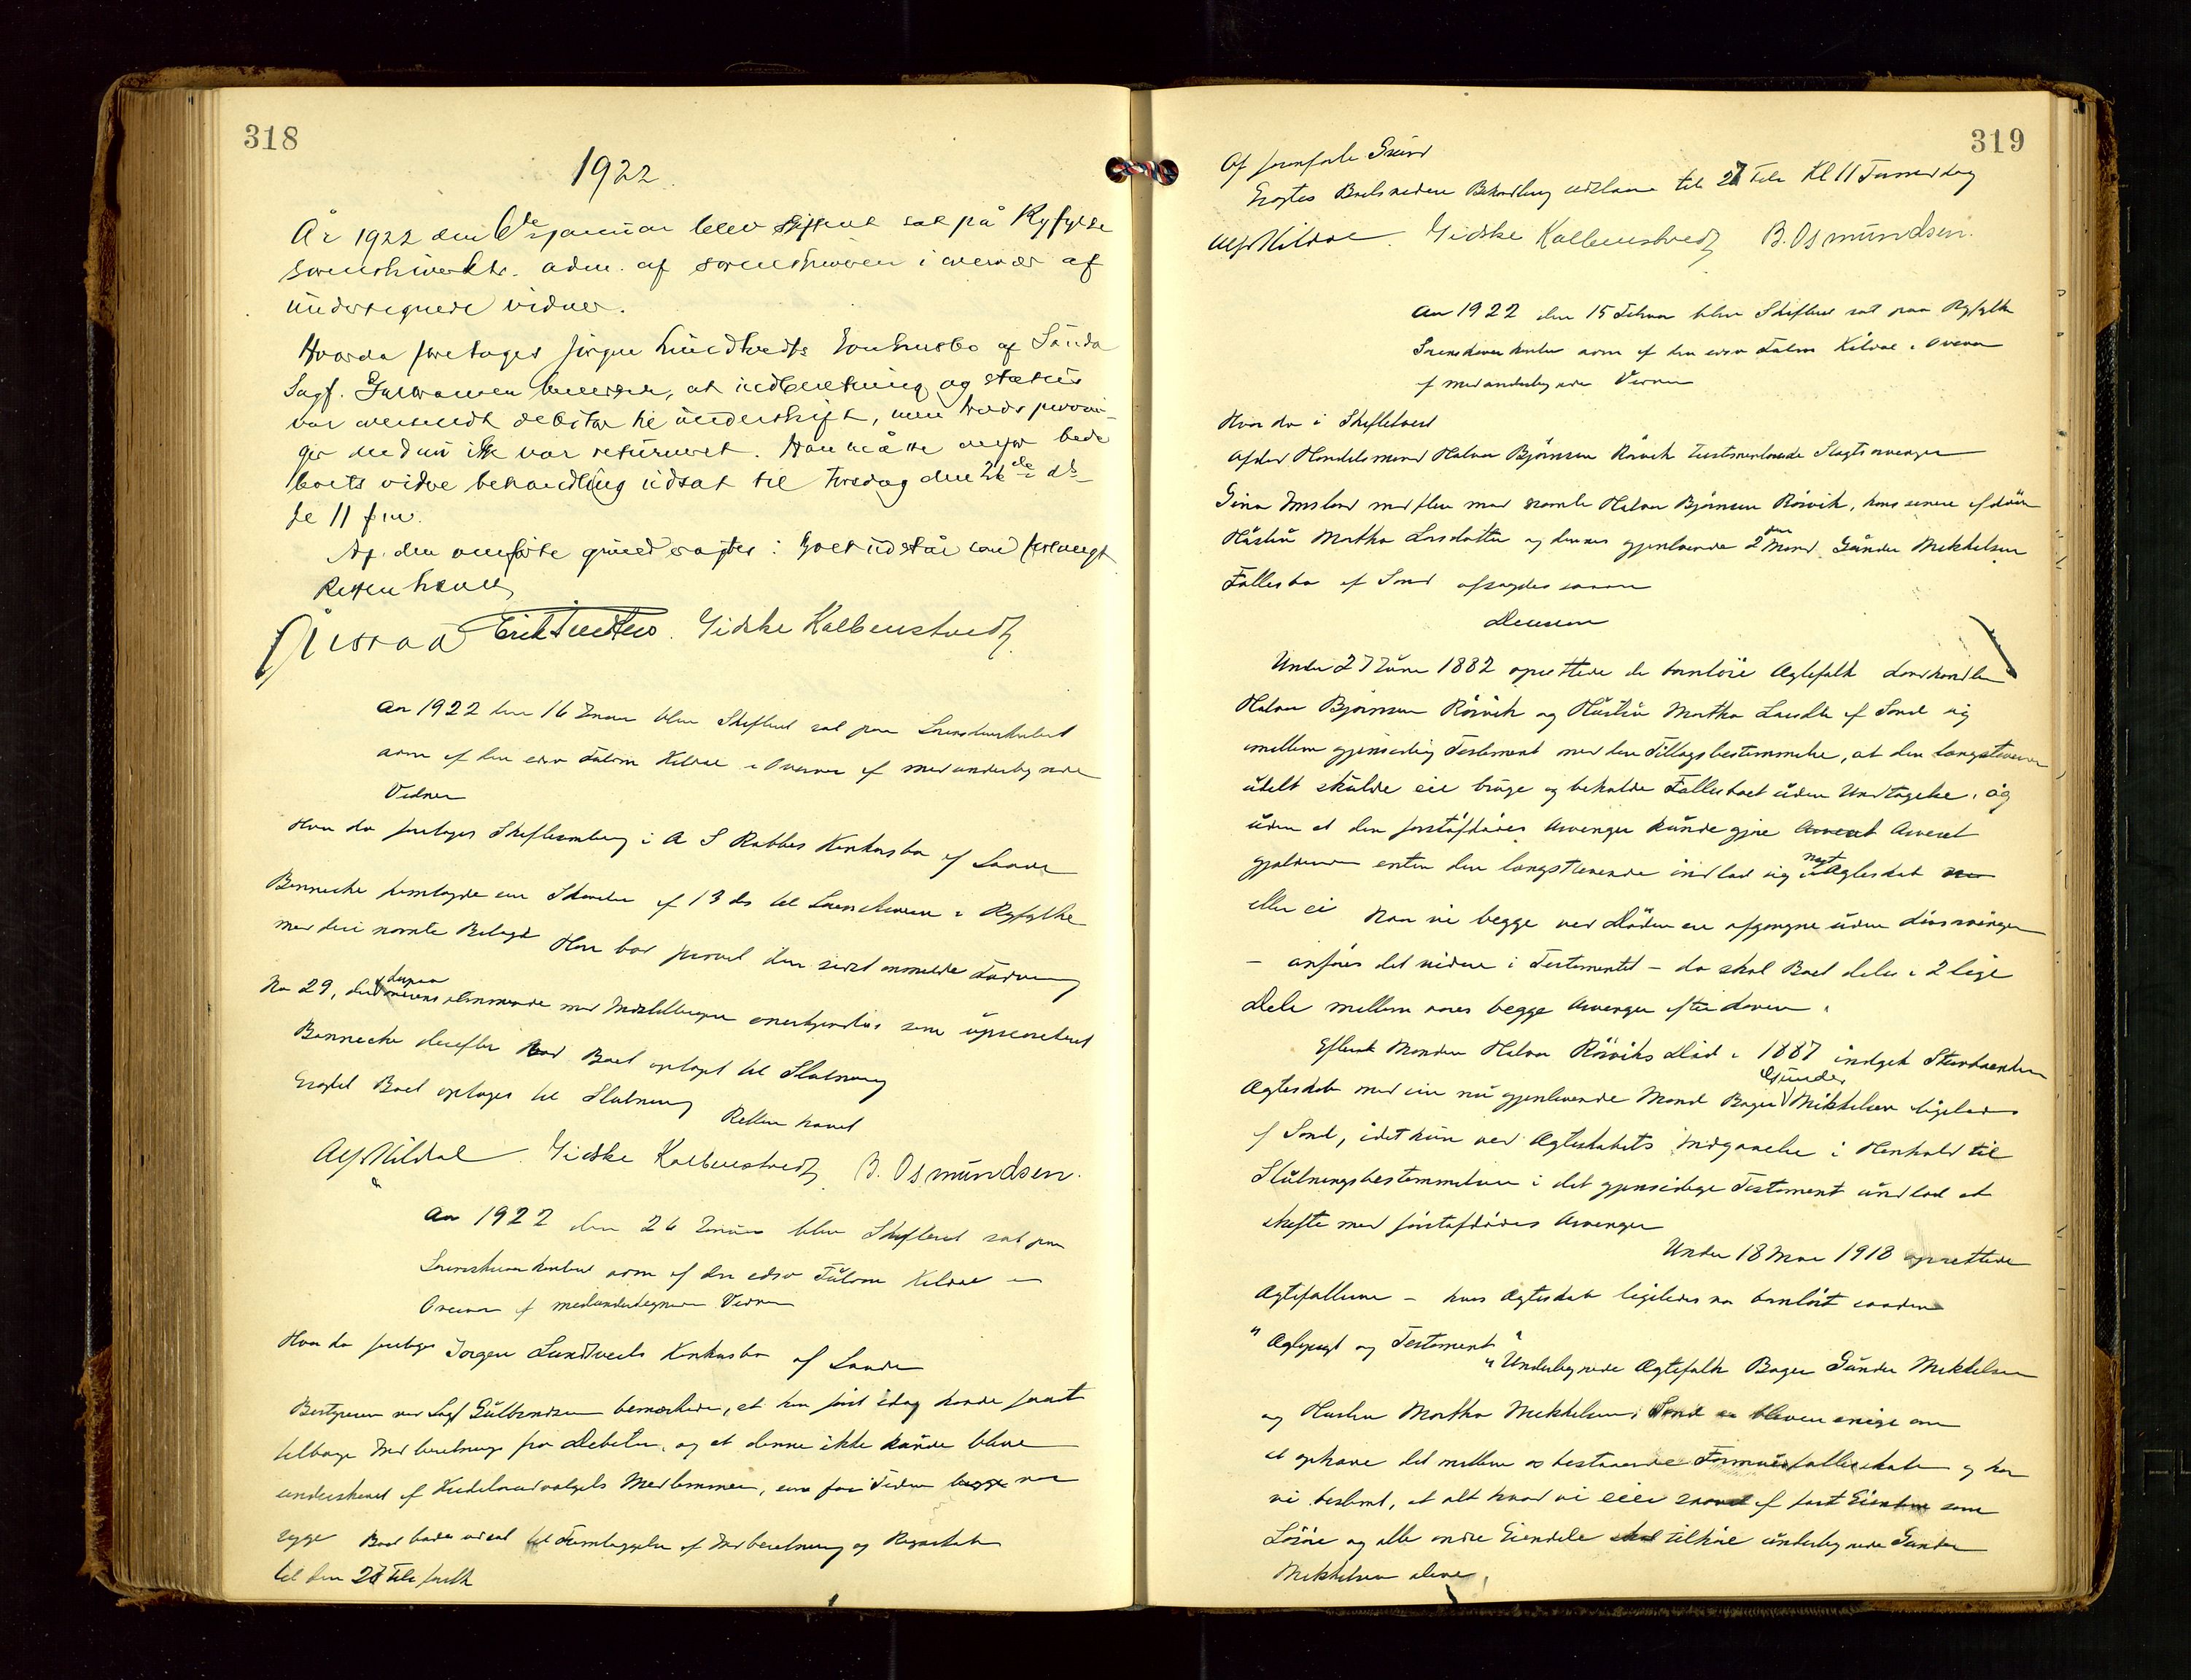 318
1922.
År 1922 den 6te januar blev skifteret sat på Ryfylke
sorenskriverktr. adm. af sorenskriveren i overvær af
undertegnede vidner.
Hvorda foretoges Jørgen Lundtvedts konkursbo af Sauda
Sagf. Gulbransen bemerkede, at indberetning og status
var oversendt debitor til underskrift, men trods
ikke var returneret. Han måtte derfor bede
boets videre behandling udsat til torsdag den 26de ds
kl 11 fm.
Af den anførte grund sagtes: Boet udstår som forlangt
Retten hævet
Gidske Kalbenstvedt
Aar 1922 den 16 Januar blev Skifteret sat paa Sorenskriverkontoret
adm af den edsv Fuldm Kildal i Overvær af medundertegnede
Vidner
Hvor da foretoges Skiftesamling i A S Rabbes Konkursbo af Sauda
Bennecke fremlagde en Skrivelse af 13 ds til Sorenskriveren i Ryfylke
med deri nævnte Bilage Han har prøvet den sidst anmeldte Fordring
No 29, der
Bennecke derefter Boet optaget til Slutning
Eragtet Boet optages til Slutning
Retten hævet
Alf Kildal. Gidske Kalbenstvedt B. Osmundsen.
Aar 1922 den 26 Januar blev Skifteret sat paa
Sorenskriverkontoret adm af den edsv Fuldm Kildal i
Overvær af medundertegnede Vidner
Hvor da foretoges Jørgen Lundtveits Konkursbo af Sauda
Bestyreren ved Sagf Gulbrandsen bemærkede, at han først idag havde faaet
tilbage Indberetning fra Debitor, og at denne ikke kunde blive
underskrevet af Kreditorudvalgets Medlemmer, som for Tiden begge var
syge Boet bades udsat til Fremlæggelse af Indberetning og Regnskab
til den 27 Feb
319
Af foranførte Grund
Eragtes Boets videre Behandling udstaar til 27 Feb Kl 11 Formiddag
Alf Kildal. Gidske Kalbenstvedt B. Osmundsen.
Aar 1922 den 15 Februar blev Skifteret sat paa Ryfylke
Sorenskriverkontor adm af den edsv Fuldm Kildal i Overvær
af medundertegnede Vidner
Hvor da i Skiftetvist
Afdøde Handelsmand Halvor Bjørnsen Røivik testamentariske Slagtsarvinger
Gina Imsland med flere mod samle Halvor Bjørnsen Røivik, hans senere afdøde
Hustru Martha Larsdatter og dennes gjenlevende 2den Mand Gunder Mikkelsen
Fællesbo af Sand afsagdes saadan
Decision
Under 27 Juni 1882 oprettede de barnløse Ægtefolk Landhandler
Halvor Bjørnsen Røivik og Hustru Martha Larsdtr af Sand sig
imellem gjensidig Testament med den Tillægsbestemmelse, at den længstlevende
udelt skulde eie bruge og beholde Fællesboet uden Undtagelse, og
uden at den førstafdødes Arvinger kunde gjøre Arveret
gjældende enten den længstlevende indlod sig i nyt Ægteskab
eller ei Naar vi begge ved Døden ere afgangne uden Livsarvinger
– anføres det videre i Testamentet – da skal Boet deles i 2 lige
Dele mellem vores begge Arvinger efter Loven.
Efterat Manden Halvor Røiviks Død i 1887 indgik Martha
Ægteskab med sin nu gjenlevende Mand Bager Gunder Mikkelsen ligeledes
af Sand, idet hun ved Ægteskabets Indgaaelse i Henhold til
Slutningsbestemmelsen i det gjensidige Testament undlod at
skifte med førstafdødes Arvinger
Under 18 Mai 1918 oprettede
Ægtefællerne – hvis Ægteskab ligeledes var barnløst saadan
"Ægtepagt og Testament"
"Undertegnede Ægtefolk Bager Gunder Mikkelsen
og Hustru Martha Mikkelsen, Sand er bleven enige om
at ophæve det mellem os bestaaende Formuesfællesskab og har
vi bestemt, at alt hvad vi eier saavel af fast Eiendom som
Løsøre og alle andre Eiendele skal tilhøre undertegnede Gunder
Mikkelsen alene,